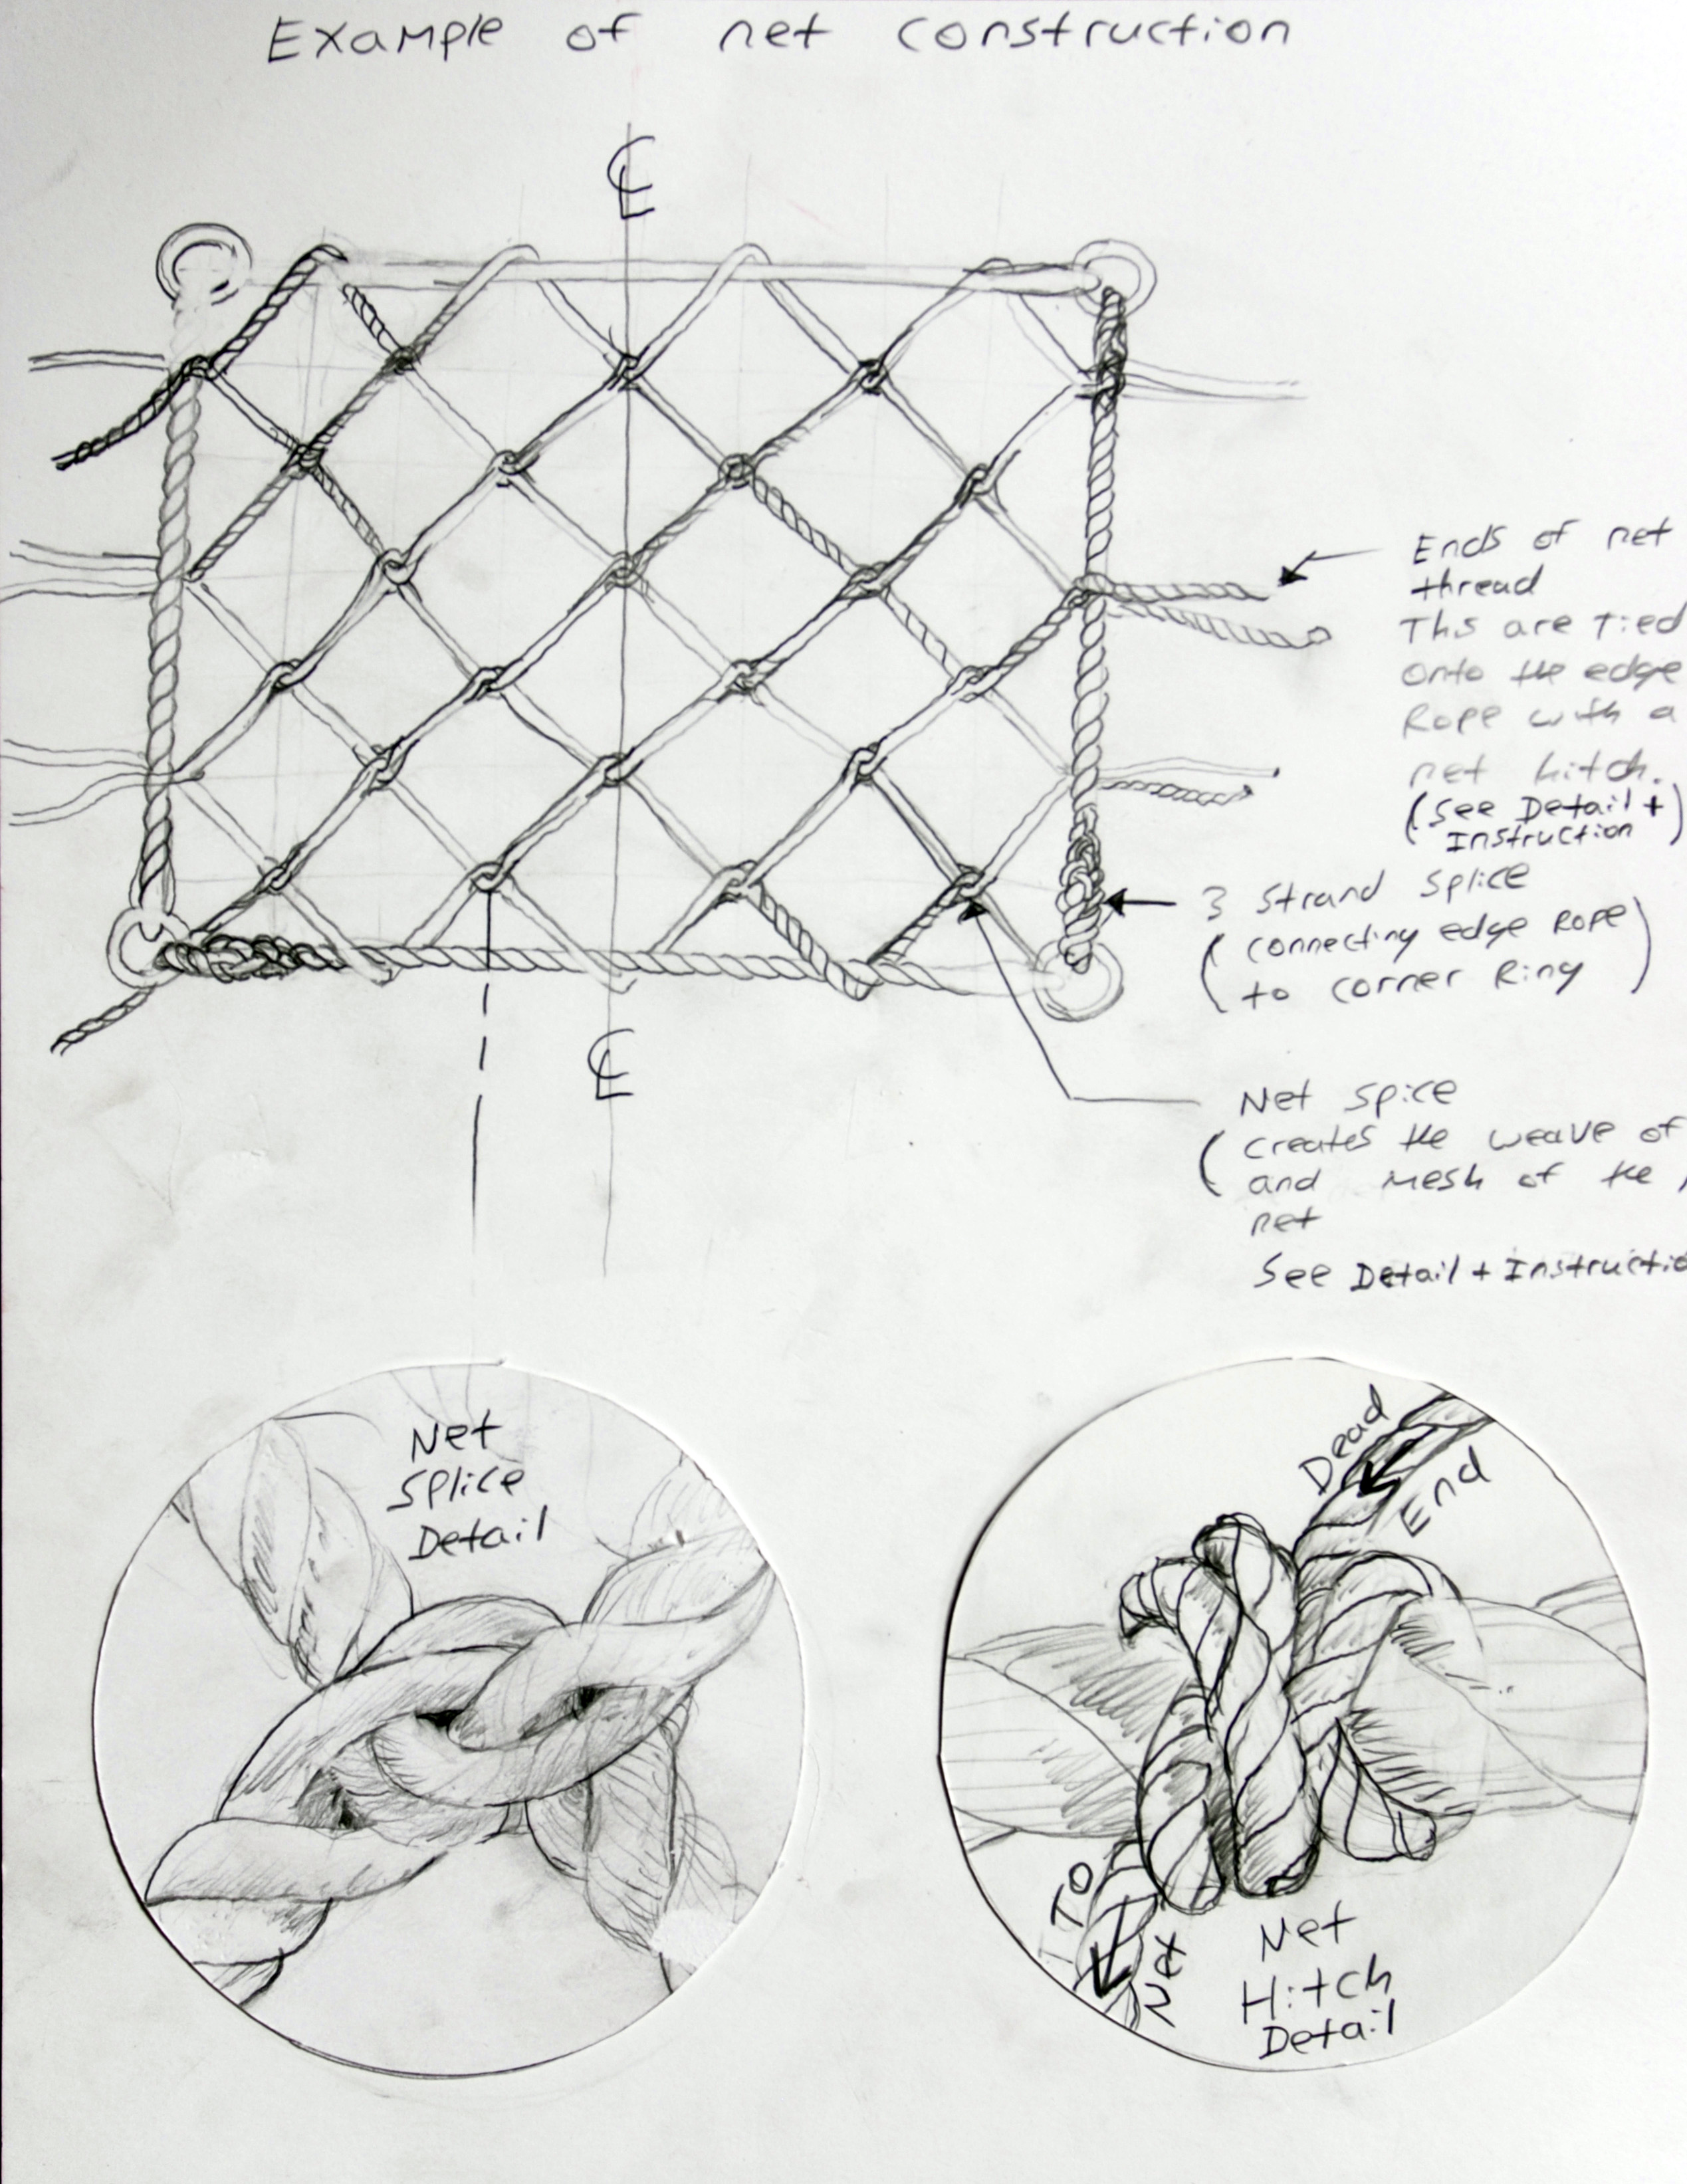 Example of net construction
℄
Ends of net
thread
Ths are Tied
onto the edge
Rope with a
net hitch.
(See Detail +)
Instruction
3 Strand Splice
(connecting edge Rope)
to corner Ring
℄
Net Spice
(creates the weave of
and mesh of the
net
See Detail + Instructio
Net
Splice
Detail
Dead
End
To
Net
Net
Hitch
Detail